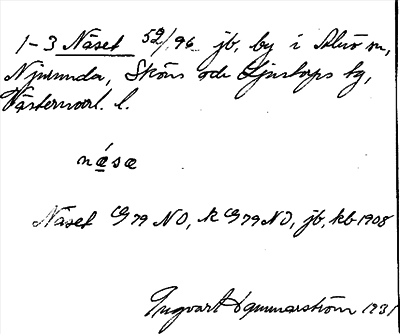 1-3 Näset 52/96 jb, by i Alnö m,
Njurunda, Sköns och Ljustorps tg,
Västernorrl. l.
näsa
Näset G79 NO, k G79 NO, jb, kb 1908
Ingvart Hammarström 1931